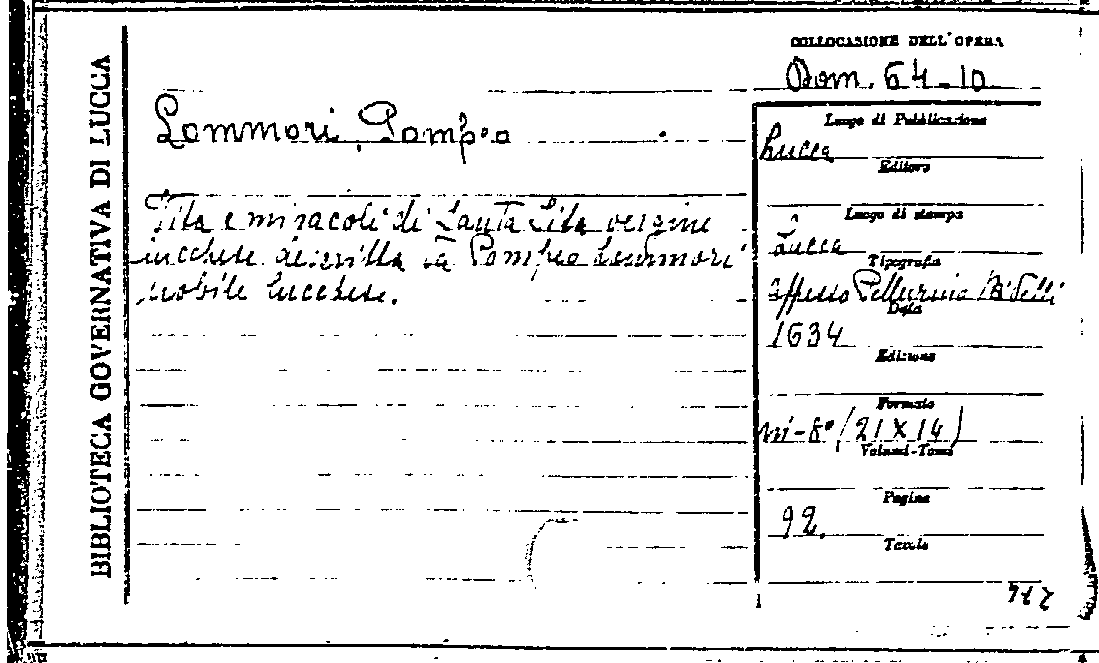 BIBLIOTECA GOVERNATIVA DI LUCCA
COLLOCAZIONE DELL'OPERA
Dom. 64-10
Lommori, Pompeo
Luogo di Pubblicazione
Lucca
Editore
Vita e miracoli di Santa Zita vergine
lucchese descritta da Pompeo Lommori
nobile lucchese.
Luogo di stampa
Lucca
Tipografia
appresso Pellegrino Bidelli
Data
1634
Edizione
Formato
in-8° (21 X 14)
Volumi-Tomi
Pagine
92.
Tavole